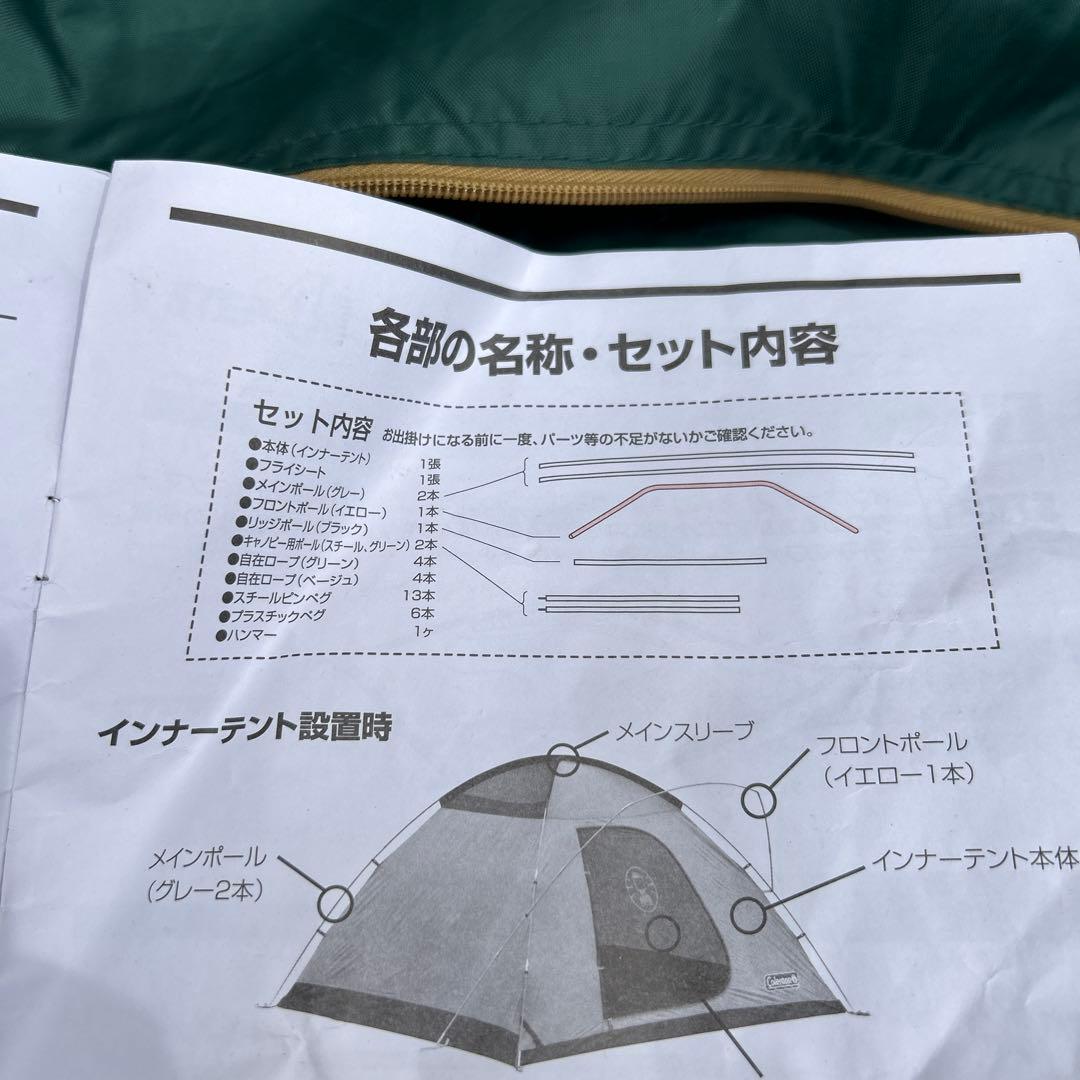 各部の名称・セット内容
セット内容 お出掛けになる前に一度、パーツ等の不足がないかご確認ください。
●本体(インナーテント) 1張
●フライシート 1張
●メインポール(グレー) 2本
●フロントポール(イエロー) 1本
●リッジポール(ブラック) 1本
●キャノピー用ポール(スチール、グリーン) 2本
●自在ロープ(グリーン) 4本
●自在ロープ(ベージュ) 4本
●スチールピンペグ 13本
●プラスチックペグ 6本
●ハンマー 1ヶ
インナーテント設置時
メインスリーブ
フロントポール
(イエロー1本)
メインポール
(グレー2本)
インナーテント本体
Coleman